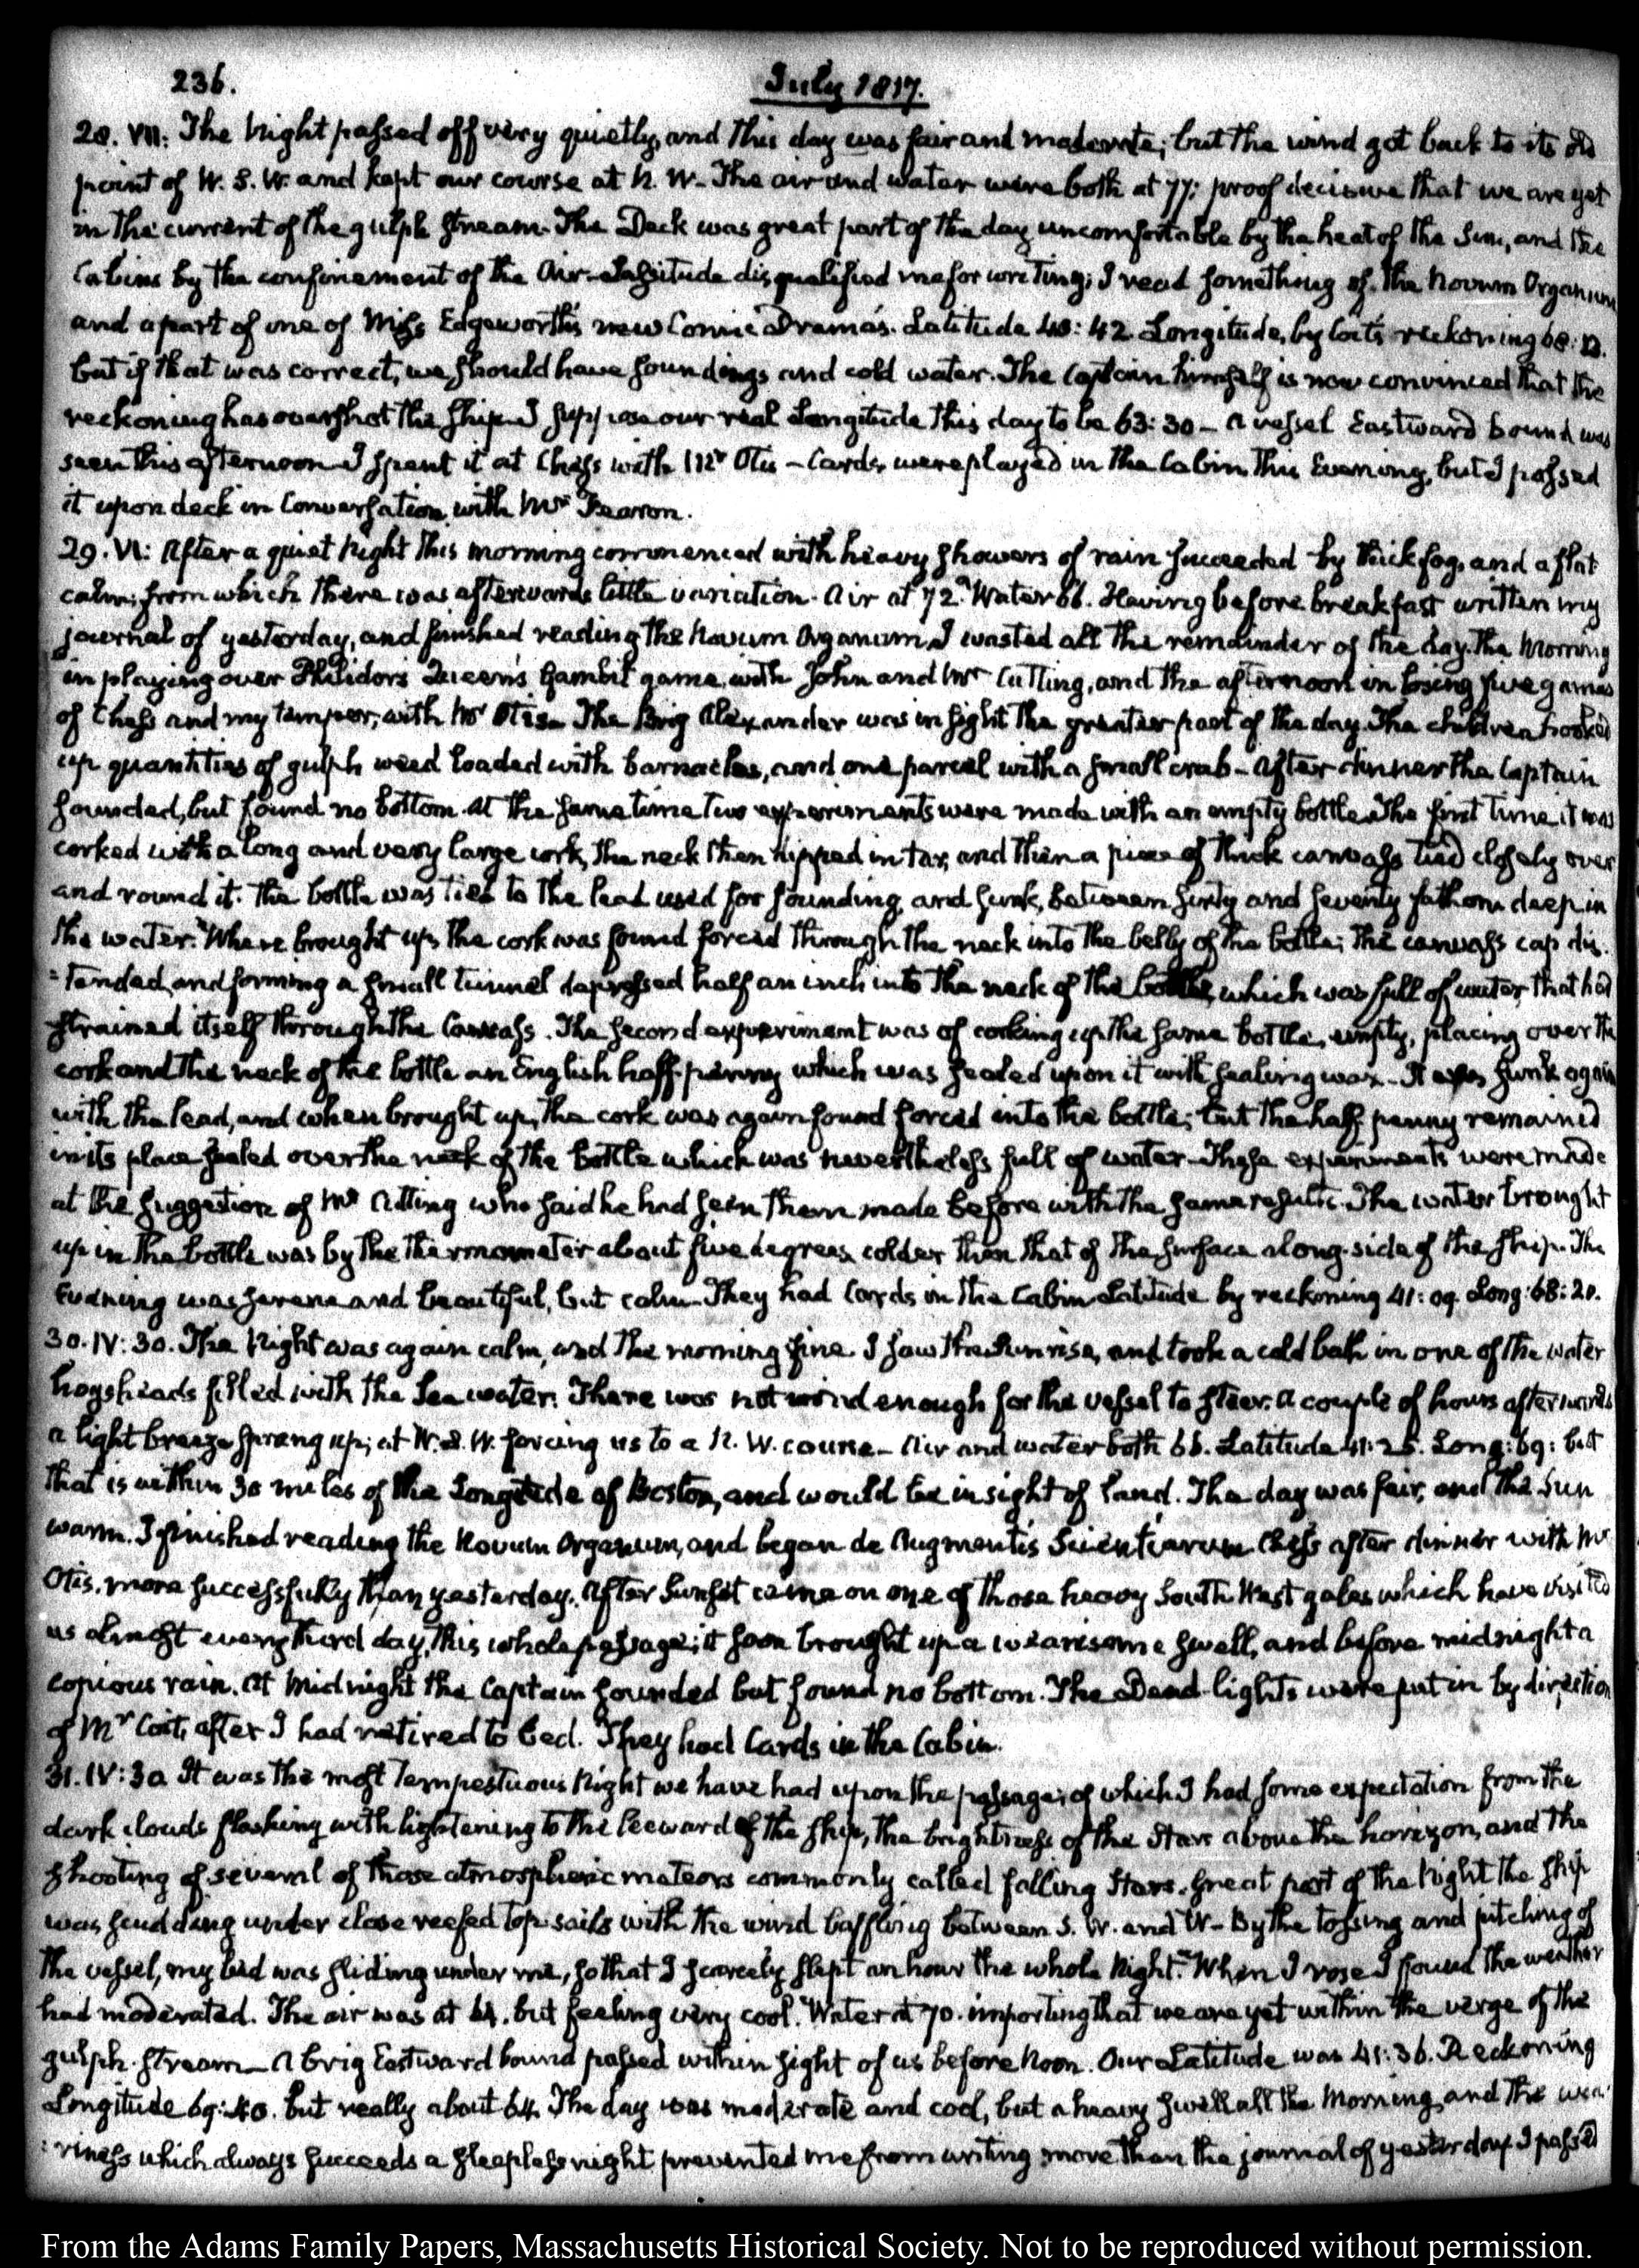 236.
July 1817.
28. VII: The Night passed off very quietly, and this day was fair and moderate; but the wind got back to its old
point of W. S. W. and kept our course at N. W. The air and water were both at 77: proof decisive that we are yet
in the current of the gulph stream. The Deck was great part of the day uncomfortable by the heat of the Sun, and the
Cabins by the confinement of the Air. Lassitude disqualified me for writing; I read something of the Novum Organum
and a part of one of Miss Edgeworth's new Comic Drama's. Latitude 40: 42. Longitude, by Coit's reckoning 68:
but if that was correct, we should have soundings and cold water. The Captain himself is now convinced that the
reckoning has overshot the ship. I suppose our real Longitude this day to be 63: 30 – A vessel Eastward bound was
seen this afternoon. I spent it at Chess with Mr Otis – Cards were played in the Cabin this Evening, but I passed
it upon deck in Conversation with Mr Fearon.
29. VI: After a quiet Night this morning commenced with heavy showers of rain succeeded by thick fog, and a flat
calm; from which there was afterwards little variation. Air at 72. Water 66. Having before breakfast written my
journal of yesterday, and finished reading the Novum Organum, I wasted all the remainder of the day. The Morning
in playing over Philidor's Queen's Gambit game, with John and Mr Cutting, and the afternoon in losing five games
of Chess and my temper, with Mr Otis. The Brig Alexander was in sight the greater part of the day. The children hooked
up quantities of gulph weed loaded with barnacles, and one parcel with a small crab – After dinner the Captain
sounded, but found no bottom. At the same time two experiments were made with an empty bottle. The first time it was
corked with a long and very large cork, the neck then dipped in tar, and then a piece of thick canvass tied closely over
and round it. The bottle was tied to the lead used for sounding, and sunk, between sixty and seventy fathom deep in
the water. When brought up, the cork was found forced through the neck into the belly of the bottle; the canvass cap dis-
=tended, and forming a small tunnel depressed half an inch into the neck of the bottle, which was full of water, that had
strained itself through the Canvass. The second experiment was of corking up the same bottle, empty, placing over the
cork and the neck of the bottle an English half-penny which was sealed upon it with sealing wax – It was sunk again
with the lead, and when brought up, the cork was again found forced into the bottle; but the half penny remained
in its place sealed over the neck of the bottle which was nevertheless full of water – These experiments were made
at the suggestion of Mr Cutting who said he had seen them made before with the same results. The water brought
up in the bottle was by the thermometer about five degrees colder than that of the surface along-side of the ship. The
Evening was serene and beautiful, but calm. They had Cards in the Cabin. Latitude by reckoning 41: 09. Long: 68: 20.
30. IV: 30. The Night was again calm, and the morning fine. I saw the Sun rise, and took a cold bath in one of the water
hogsheads filled with the Sea water. There was not wind enough for the vessel to steer. A couple of hours afterwards
a light breeze sprang up, at W. S. W. forcing us to a N. W. course – Air and water both 66. Latitude 41: 25. Long: 69: but
that is within 30 miles of the Longitude of Boston, and would be in sight of land. The day was fair, and the Sun
warm. I finished reading the Novum Organum, and began de Augmentis Scientiarum. Chess after dinner with Mr
Otis. more successfully than yesterday. After Sunset came on one of those heavy South West gales which have visited
us almost every third day, this whole passage; it soon brought up a wearisome swell, and before midnight a
copious rain. At Midnight the Captain sounded but found no bottom. The Dead-lights were put in by direction
of Mr Coit, after I had retired to bed. They had Cards in the Cabin.
31. IV: 30. It was the most Tempestuous Night we have had upon the passage; of which I had some expectation from the
dark clouds flashing with lightening to the leeward of the ship, the brightness of the Stars above the horizon, and the
shooting of several of those atmospheric meteors commonly called falling Stars. Great part of the Night the ship
was scudding under close reefed top-sails with the wind baffling between S. W. and W – By the tossing and pitching of
the vessel, my bed was sliding under me, so that I scarcely slept an hour the whole Night. When I rose I found the weather
had moderated. The air was at 64. but feeling very cool. Water at 70. importing that we are yet within the verge of the
gulph-stream – A brig Eastward bound passed within sight of us before Noon. Our Latitude was 41: 36. Reckoning
Longitude 69: 40. but really about 64. The day was moderate and cool, but a heavy swell all the Morning, and the wea-
=riness which always succeeds a sleepless night prevented me from writing more than the journal of yesterday. I passed
From the Adams Family Papers, Massachusetts Historical Society. Not to be reproduced without permission.